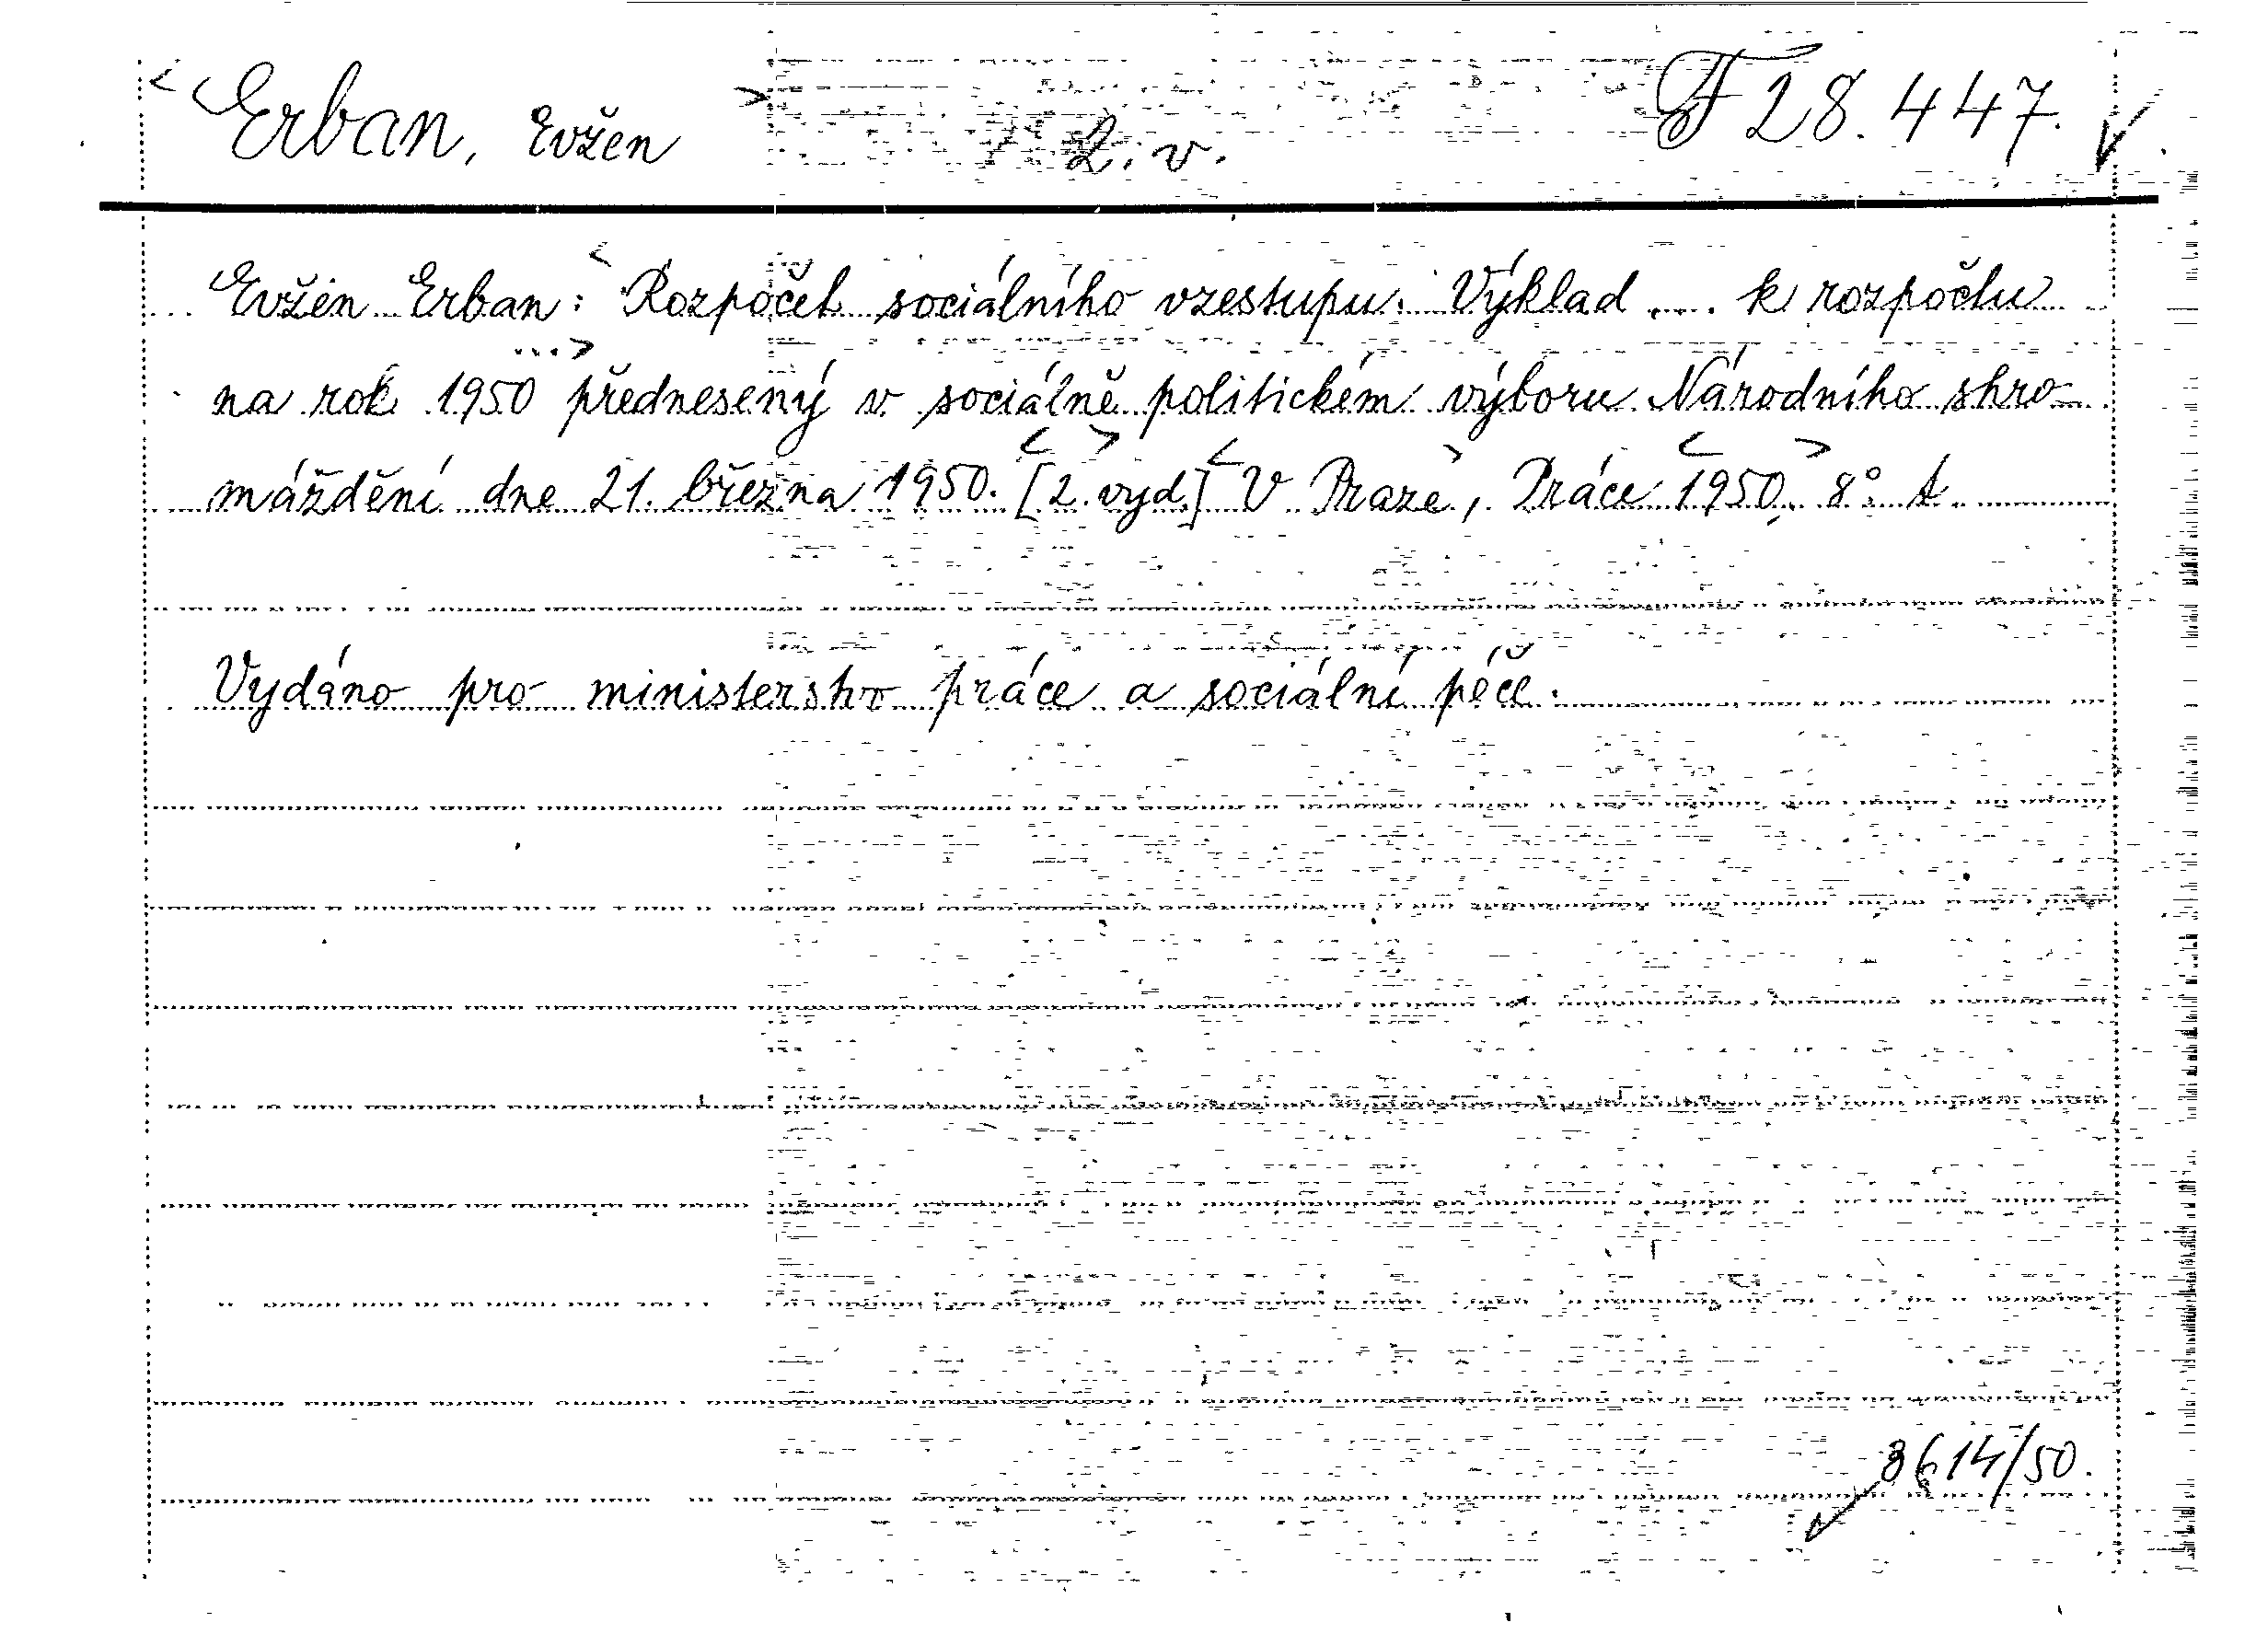 < Erban, Evžen > 2. v. F 28.447.
Evžen Erban: < Rozpočet sociálního vzestupu. Výklad ... k rozpočtu
na rok 1950 ...> přednesený v sociálně politickém výboru Národního shro-
máždění dne 21. března 1950. <[2. vyd.]> <V Praze>, Práce <1950>. 8°. A.
Vydáno pro ministerstvo práce a sociální péče.
3614/50.